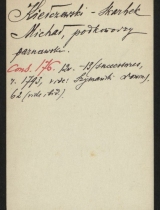 Kierczewski - Skarbek
Michał, podkomorzy
parnawski.
Cons. 176. 12v. -13/successores,
r. 1793, vide: Szymanki
62 (vide: A.d.)